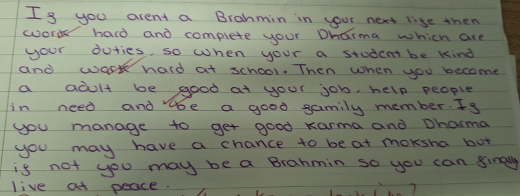 If you arent a Brahmin in your next life then
work hard and complete your Dharma which are
your duties, so when your a student be kind
and work hard at school. Then when you become
a adult be good at your job, help people
in need and be a good family member. If
you manage to get good karma and Dharma
you may have a chance to be at moksha but
if not you may be a Brahmin so you can finally
live at peace.